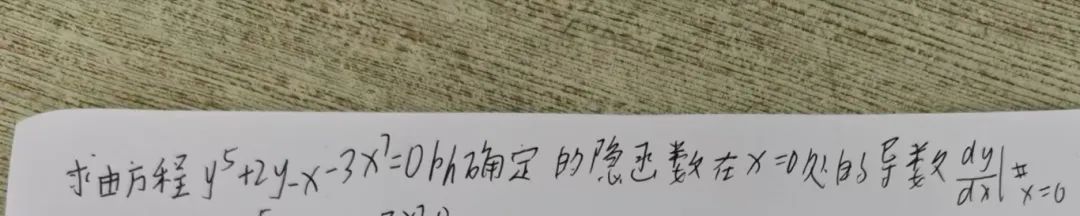 求由方程 y⁵+2y-x-3x⁷=0所确定的隐函数在x=0处的导数 dy/dx|x=0